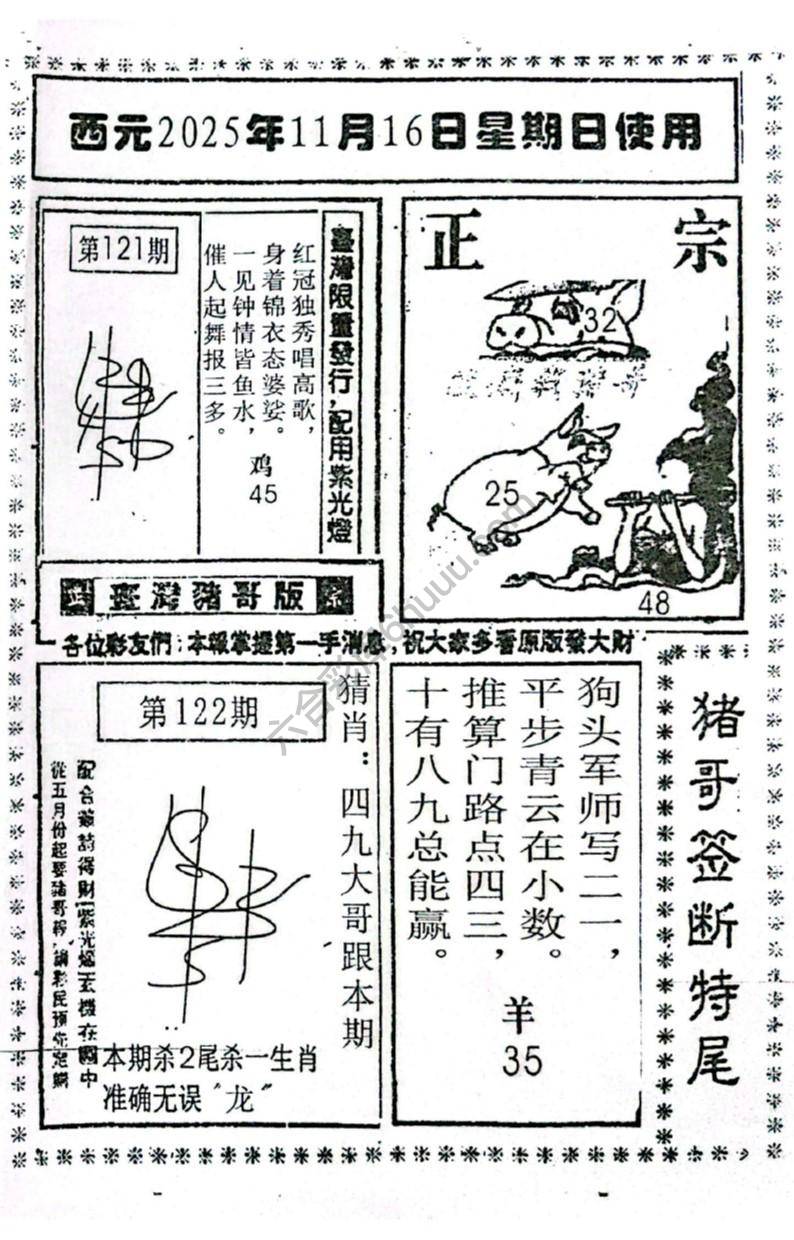 西元2025年11月16日星期日使用
第121期
臺灣限量發行,配用紫光燈
红冠独秀唱高歌,
身着锦衣态婆娑。
一见钟情皆鱼水,
催人起舞报三多。
鸡
45
正宗
32
25
48
臺灣豬哥版
各位彩友們:本報掌握第一手消息,祝大家多看原版發大財
第122期
猜肖:四九大哥跟本期
從五月份起要豬哥報
本期杀2尾杀一生肖
准确无误“龙”
狗头军师写二一,
平步青云在小数。
推算门路点四三,
十有八九总能赢。
羊
35
猪哥签断特尾